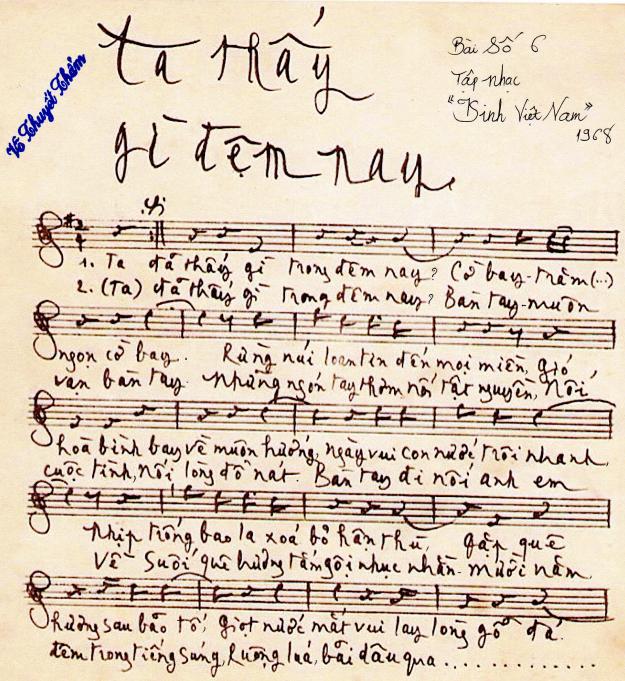 Ta thấy
gì đêm nay
Bài Số 6
Tập nhạc
"Kinh Việt Nam"
1968
Võ Thuyết Thảm
1. Ta đã thấy gì trong đêm nay? Cờ bay - trăm (...)
2. (Ta) đã thấy gì trong đêm nay? Bàn tay - muôn
ngọn cờ bay. Rừng núi loan tin đến mọi miền, gió
vạn bàn tay. Những ngón tay thơm nối tật nguyền, Nối
hoà bình bay về muôn hướng, ngày vui con nước trôi nhanh,
cuộc tình, nối lòng đổ nát. Bàn tay đi nối anh em
nhịp trống bao la xoá bỏ hận thù, gặp quê
Về suối quê hương tắm gội nhục nhằn. mười năm
hương sau bão tố, giọt nước mắt vui lay lòng gỗ đá.
đêm trong tiếng súng, Ruộng lúa, bãi dâu qua ..............